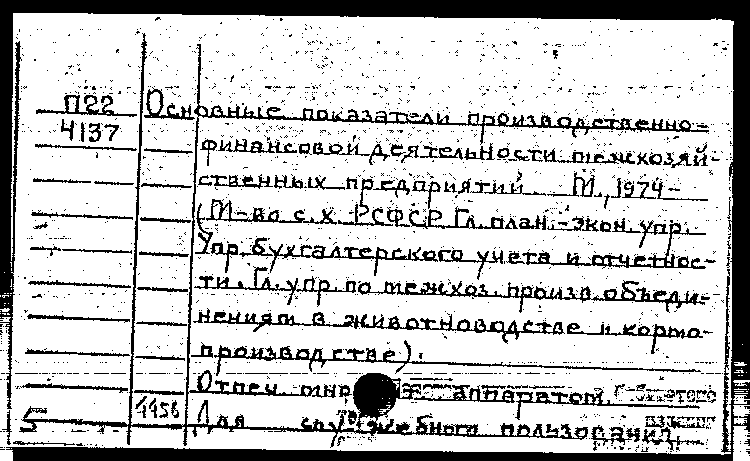 П22 Основные показатели производственно-
4137 финансовой деятельности межхозяй-
ственных предприятий. М., 1974-
(М-во с.х. РСФСР Гл. план.-экон. упр.
Упр. бухгалтерского учета и отчетнос-
ти. Гл. упр. по межхоз. произв. объеди-
нениям в животноводстве и кормо-
производстве).
Отпеч. множ. аппаратом.
5 4456 Для служебного пользования.